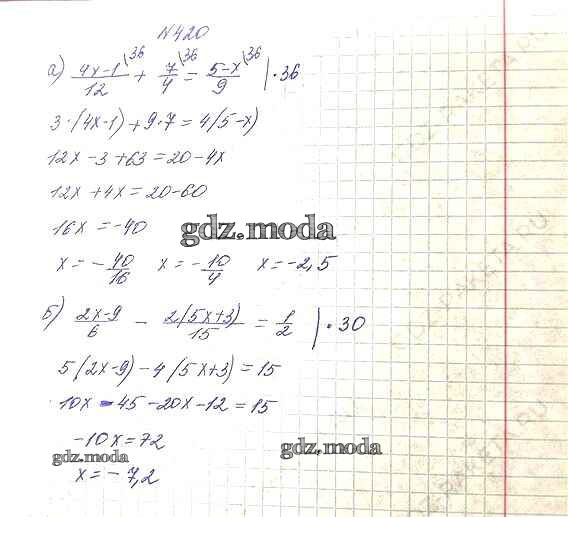 №420
а) \frac{4x-1}{12}\36 + \frac{7}{4}\36 = \frac{5-x}{9}\36 | · 36
3 · (4x-1) + 9 · 7 = 4(5-x)
12x - 3 + 63 = 20 - 4x
12x + 4x = 20 - 60
16x = -40
gdz.moda
x = -\frac{40}{16} x = -\frac{10}{4} x = -2,5
б) \frac{2x-9}{6} - \frac{2(5x+3)}{15} = \frac{1}{2} | · 30
5(2x-9) - 4(5x+3) = 15
10x - 45 - 20x - 12 = 15
-10x = 72
gdz.moda
gdz.moda
x = -7,2